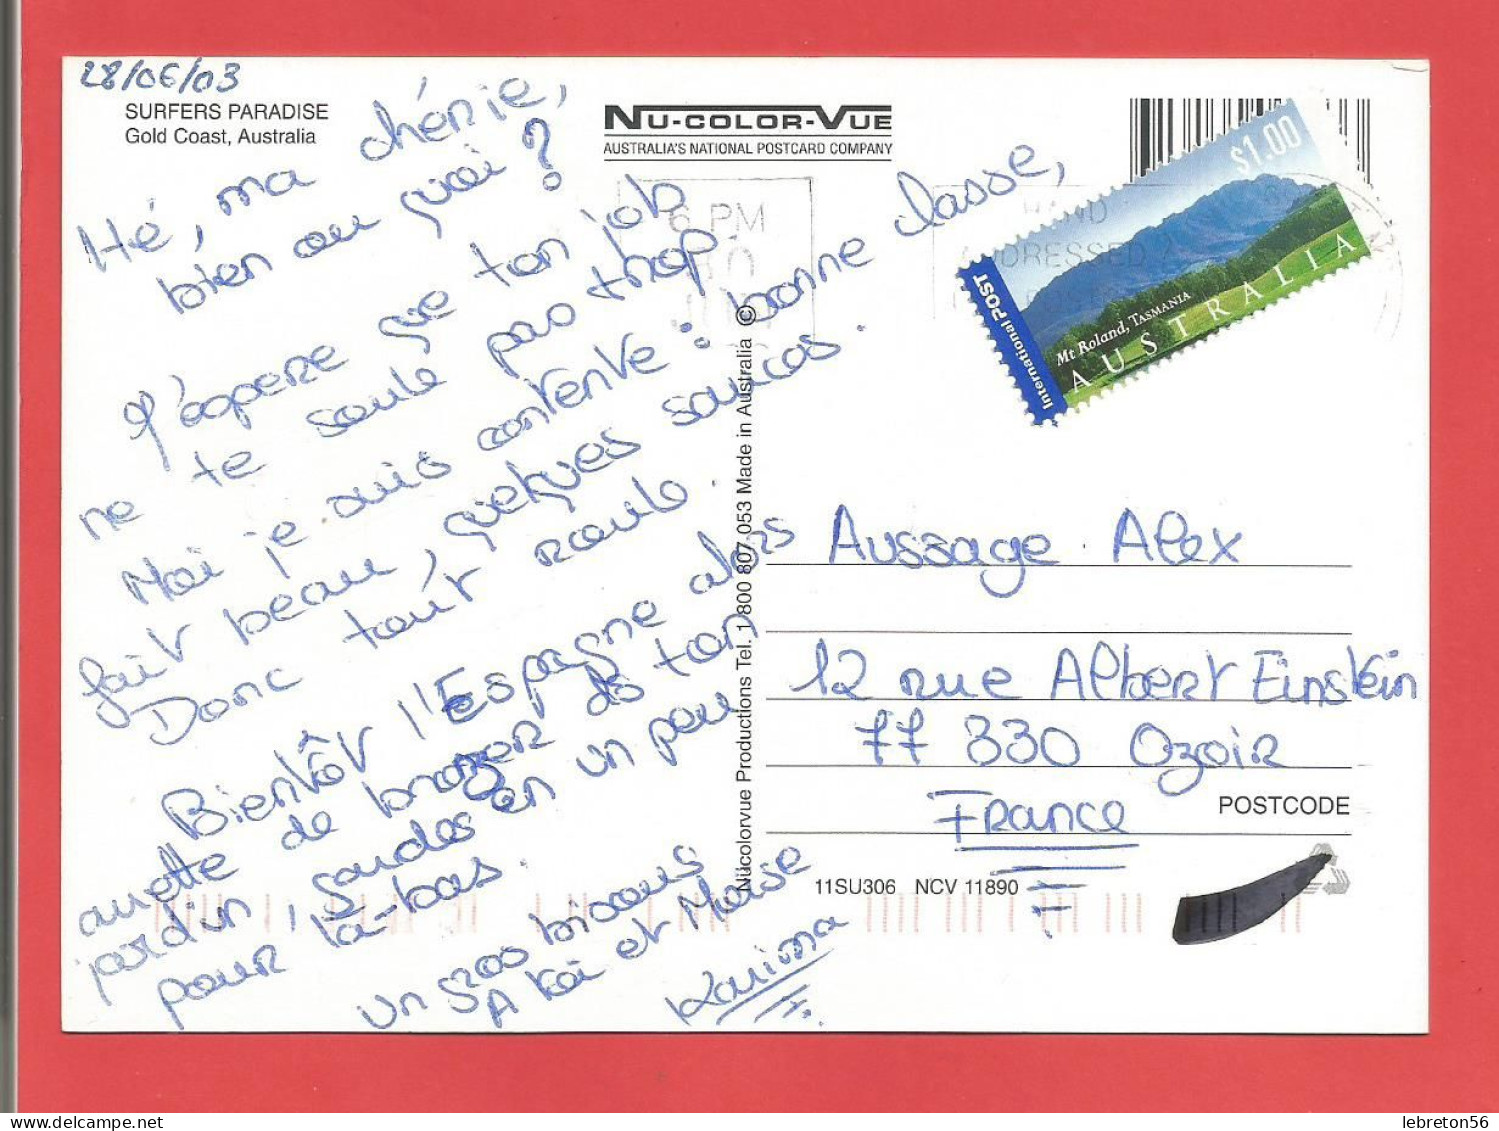 28/06/03
SURFERS PARADISE
Gold Coast, Australia
Hé, ma chérie,
bien ou quoi ?
J'espere que ton job
ne te saule pas trop
Moi je suis contente : bonne classe,
fait beau, quelques soucas.
Donc tout roule.
Bientôt l'Espagne alors
arrette de bronzer ds ton
jardin, gardes en un peu
pour là-bas.
Un gros bisous
A toi et Moise
Karima
NU-COLOR-VUE
AUSTRALIA'S NATIONAL POSTCARD COMPANY
6 PM
30
HAND
ADDRESSED ?
$1.00
International POST
Mt Roland, TASMANIA
AUSTRALIA
Nucolorvue Productions Tel. 1 800 807 053 Made in Australia ©
Aussage Alex
12 rue Albert Einstein
77 330 Ozoir
France
POSTCODE
11SU306 NCV 11890
lebreton56